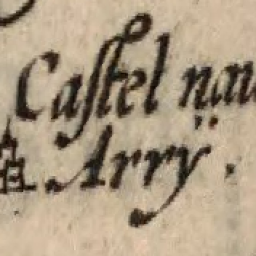 Castel nau
Arrÿ.